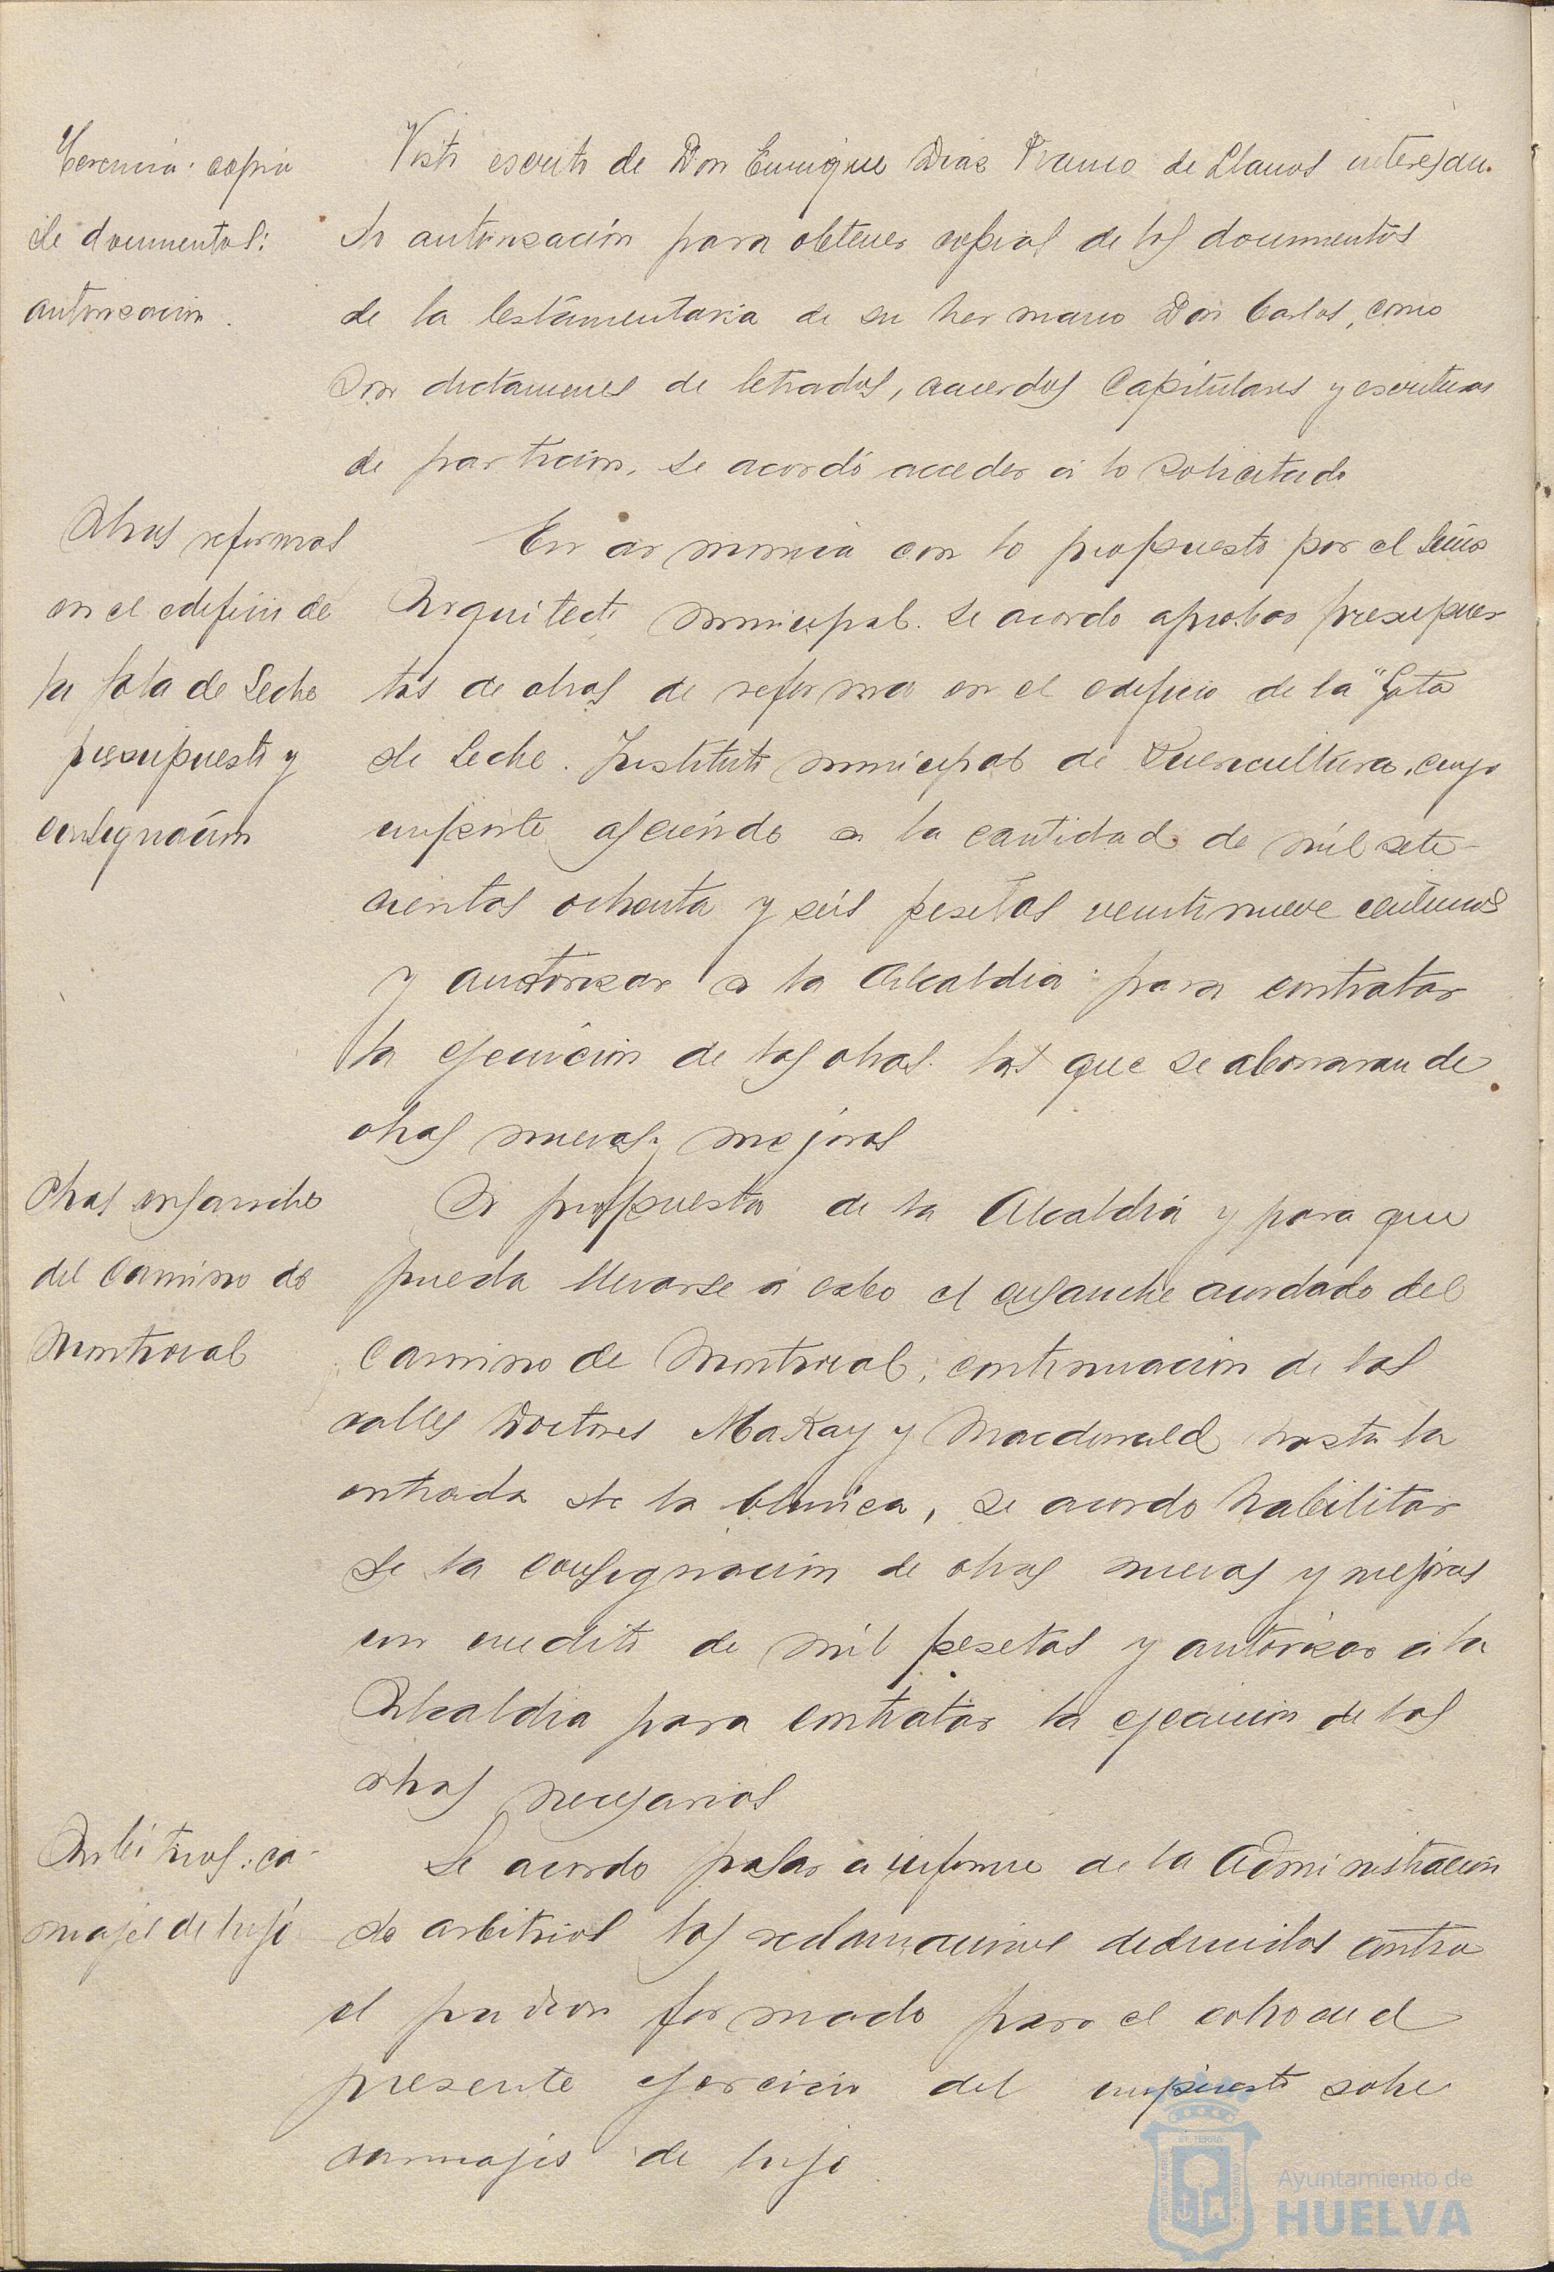 Herencia: copia
de documentos:
autorizacion.
Visto escrito de Don Enrique Diaz Franco de Llanos interesan-
do autorización para obtener copias de los documentos
de la testamentaria de su hermano Don Carlos, como
son dictamenes de letrados, acuerdos Capitulares y escrituras
de partición, se acordó acceder á lo solicitado
Obras reformas
en el edificio de
la Gota de Leche
presupuesto y
consignación
En armonia con lo propuesto por el Señor
Arquitecto municipal. se acordo aprobar presupues
tos de obras de reforma en el edificio de la "Gota
de Leche. Instituto municipal de Puericultura, cuyo
importe asciende a la cantidad de mil sete-
cientos ochenta y seis pesetas veintinueve centimos
y autorizar a la Alcaldia para contratar
la ejecución de las obras. las que se abonaran de
obras nuevas y mejoras
Obras ensanche
del Camino de
Montrocal
A propuesta de la Alcaldia y para que
pueda llevarse á cabo el ensanche acordado del
Camino de Montrocal, continuacion de las
calles Doctores MaKay y Macdonald hasta la
entrada de la Clinica, se acordo habilitar
de la consignacion de obras nuevas y mejoras
un credito de mil pesetas y autorizar á la
Alcaldia para contratar la ejecucion de las
obras necesarias
Arbitrios: ca-
rruajes de lujo
Se acordo pasar a informe de la Administración
de arbitrios las reclamaciones deducidas contra
el padron formado para el cobro en el
presente ejercicio del impuesto sobre
carruajes de lujo.
Ayuntamiento de
HUELVA